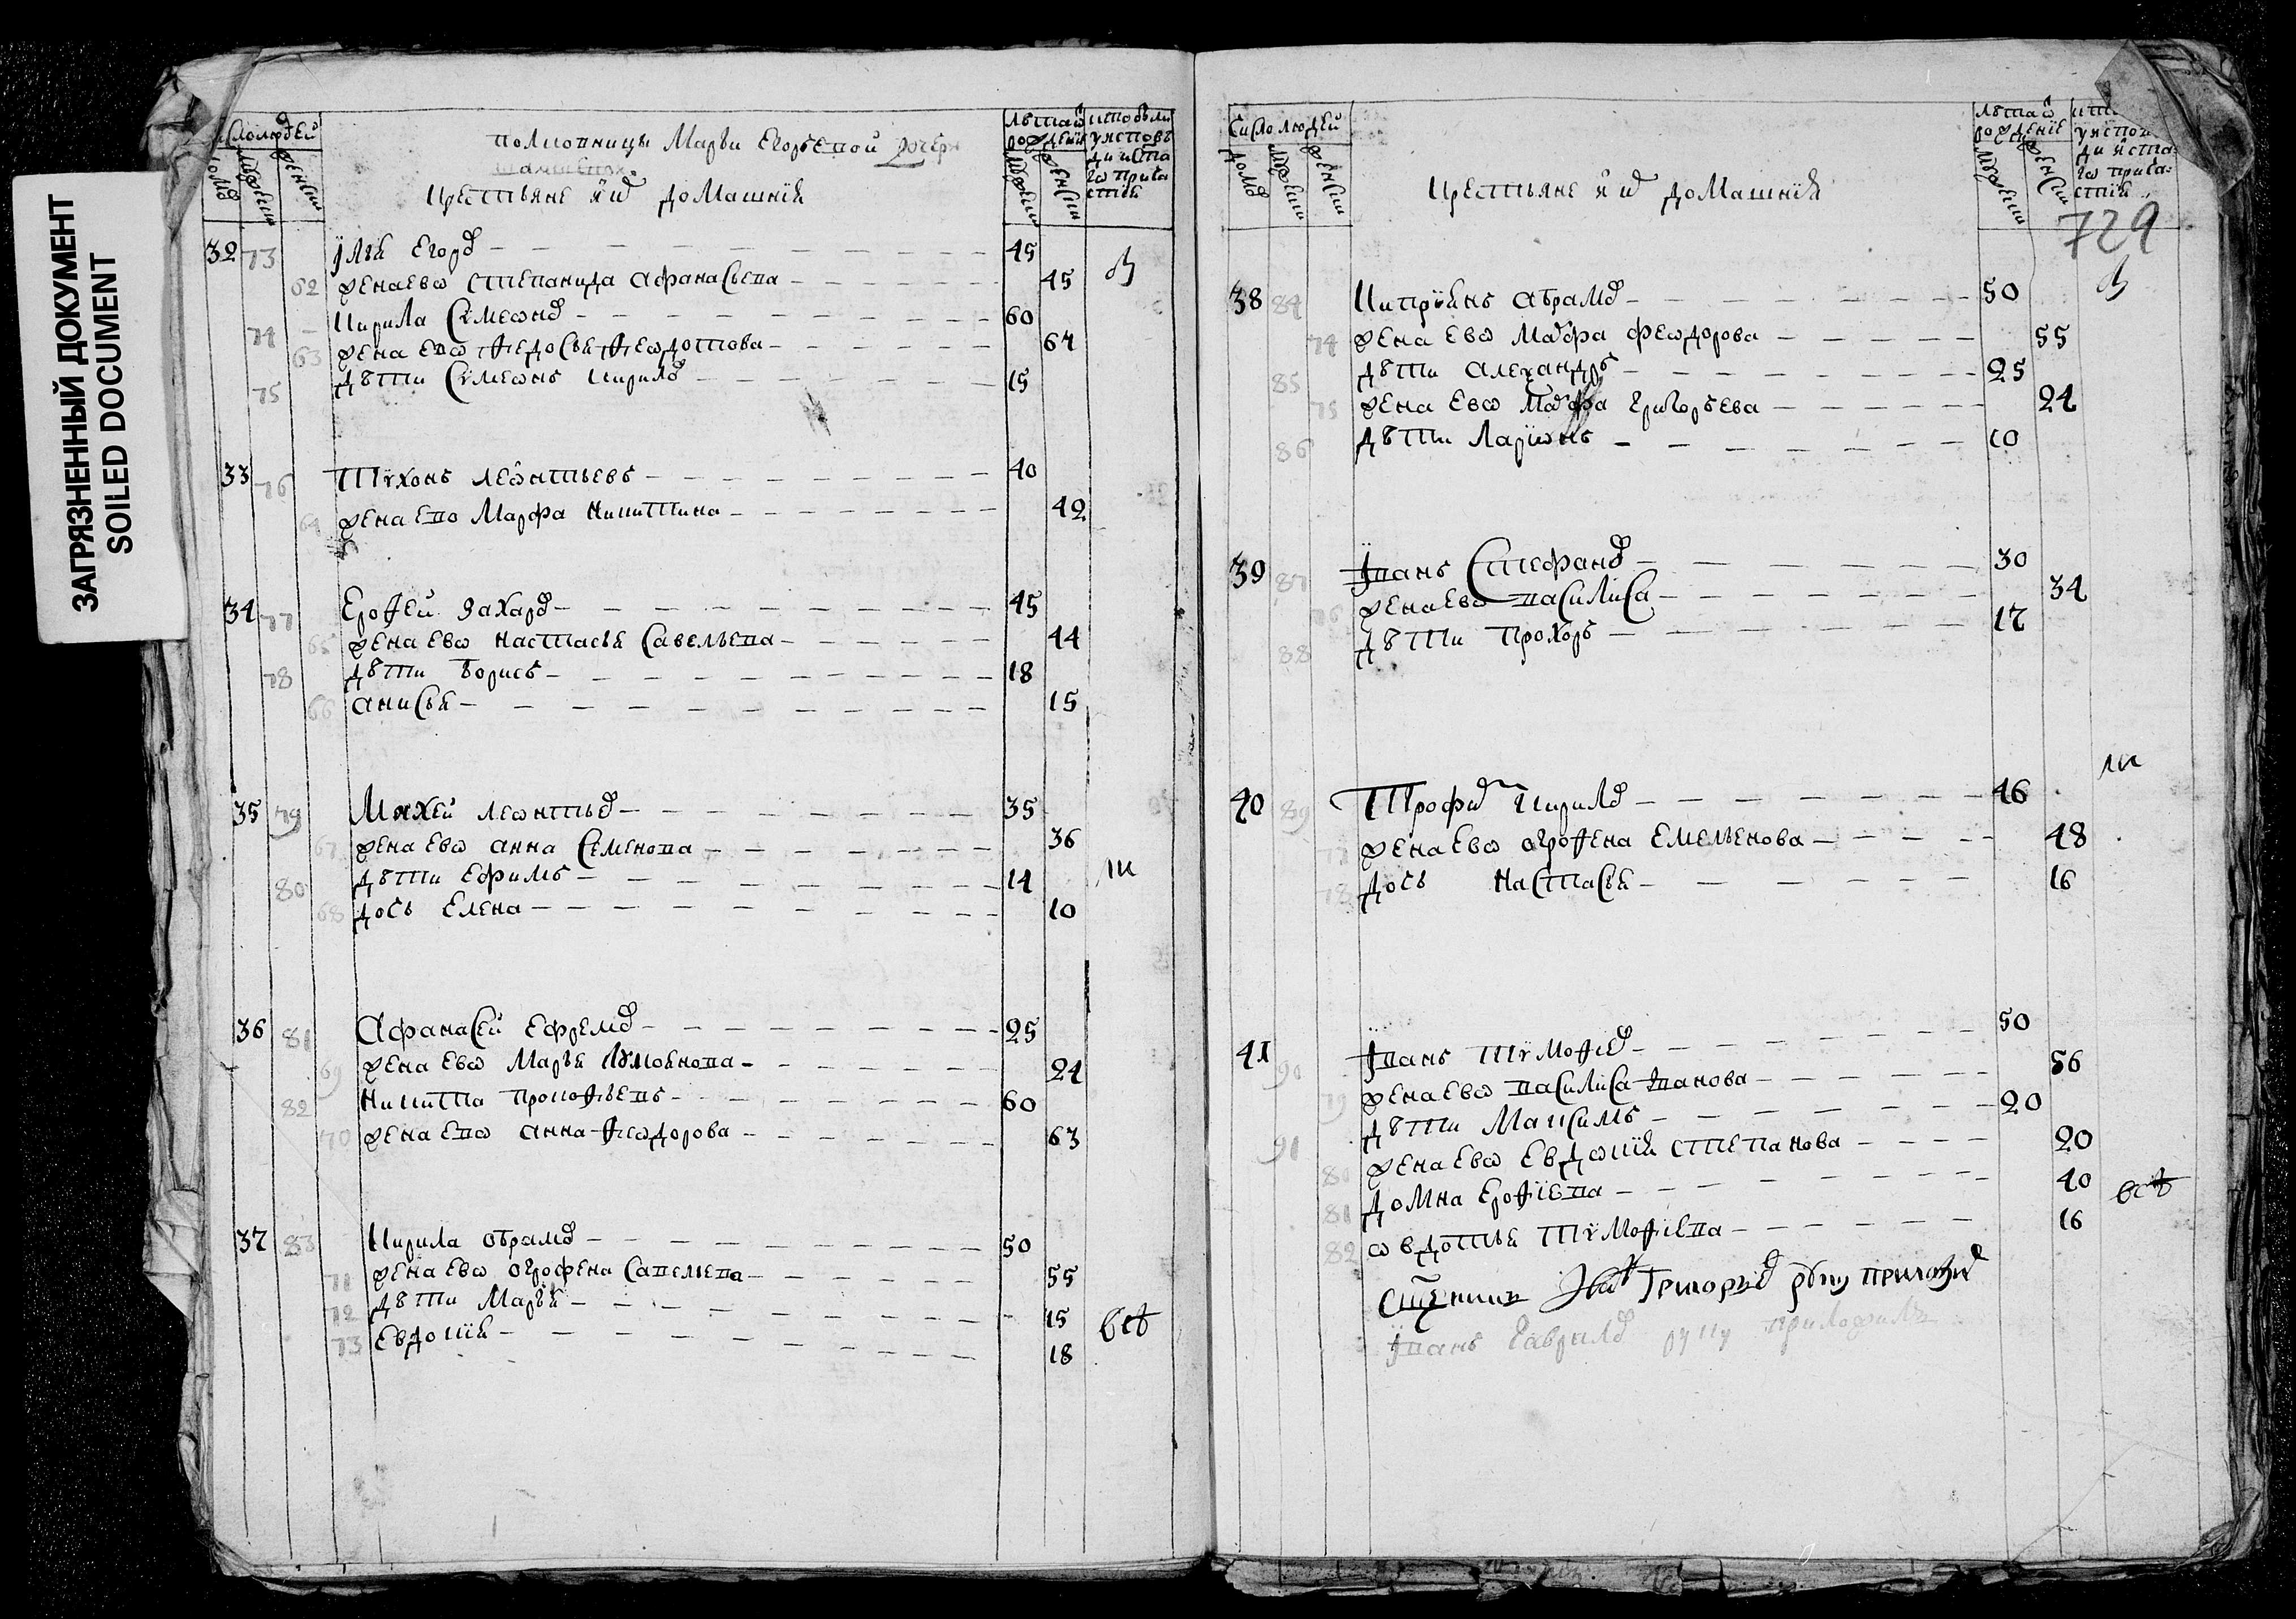 ЗАГРЯЗНЕННЫЙ ДОКУМЕНТ
SOILED DOCUMENT
число людей
полковницы Марьи Егорьевой дочери
крестьяне и их домашнїя
лета от рождения
кто был и у исповеди и свята го прича стия
домов
мужеск
женск
мужеск
женск
32 73 Ілья Егоров 45
62 жена ево Степанида Афанасьева 45
74 Кирила Симеонов 60
63 жена ево Федосья Феодотова 64
75 дѣти Симеонъ Кирилов 15
33 76 Тихонъ Леонтьевъ 40
64 жена ево Марфа Никитина 42
34 77 Ерофей Захаров 45
65 жена ево Настасья Савельева 44
78 дѣти Борисъ 18
66 Анисья 15
35 79 Михей Леонтьев 35
67 жена ево Анна Семенова 36
80 дѣти Ефимъ 14
68 дочь Елена 10
36 81 Афанасей Ефремов 25
69 жена ево Марья 24
82 Никита Прокофьевъ 60
70 жена ево Анна Феодорова 63
37 83 Кирила Обрамов 50
71 жена ево Огрофена Савельева 55
72 дѣти Марья 15
73 Евдокия 18
всѣ
число людей
крестьяне и их домашнїя
лета от рождение
729
домов
мужеск
женск
мужеск
женск
38 84 Киприянъ Абрамов 50
74 жена ево Марфа Феодорова 55
85 дѣти Александръ 25
75 жена ево Марфа Григорьева 24
86 дѣти Ларионъ 10
39 87 Іванъ Стефанов 30
76 жена ево Василиса 34
88 дѣти Прохоръ 17
40 89 Трофим Кирилов 46
77 жена ево Огрофена Емельенова 48
78 дочь Настасья 16
41 90 Іванъ Тимофеев 50
79 жена ево Василиса Іванова 56
91 дѣти Максимъ 20
80 жена ево Евдокия Степанова 20
81 Домна Ерофиева 40
82 Овдотья Тимофиева 16
всѣ
Григорьев руку приложил
Іванъ Гаврилов руку приложилъ